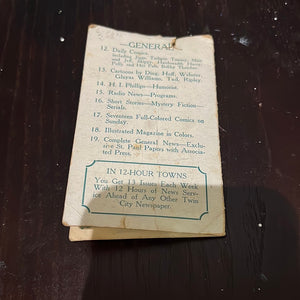 GENERAL
12. Daily Comics.
Including Joan, Tailspin Tommy, Mutt
and Jeff, Skippy, Hairbreadth Harry,
Polly and Her Pals, Bobby Thatcher.
13. Cartoons by Ding, Hoff, Webster,
Gluyas Williams, Tad, Ripley.
14. H. I. Phillips—Humorist.
15. Radio News—Programs.
16. Short Stories—Mystery Fiction—
Serials.
17. Seventeen Full-Colored Comics on
Sunday.
18. Illustrated Magazine in Colors.
19. Complete General News—Exclu-
sive St. Paul Papers with Associa-
ted Press.
IN 12-HOUR TOWNS
You Get 13 Issues Each Week
With 12 Hours of News Serv-
ice Ahead of Any Other Twin
City Newspaper.